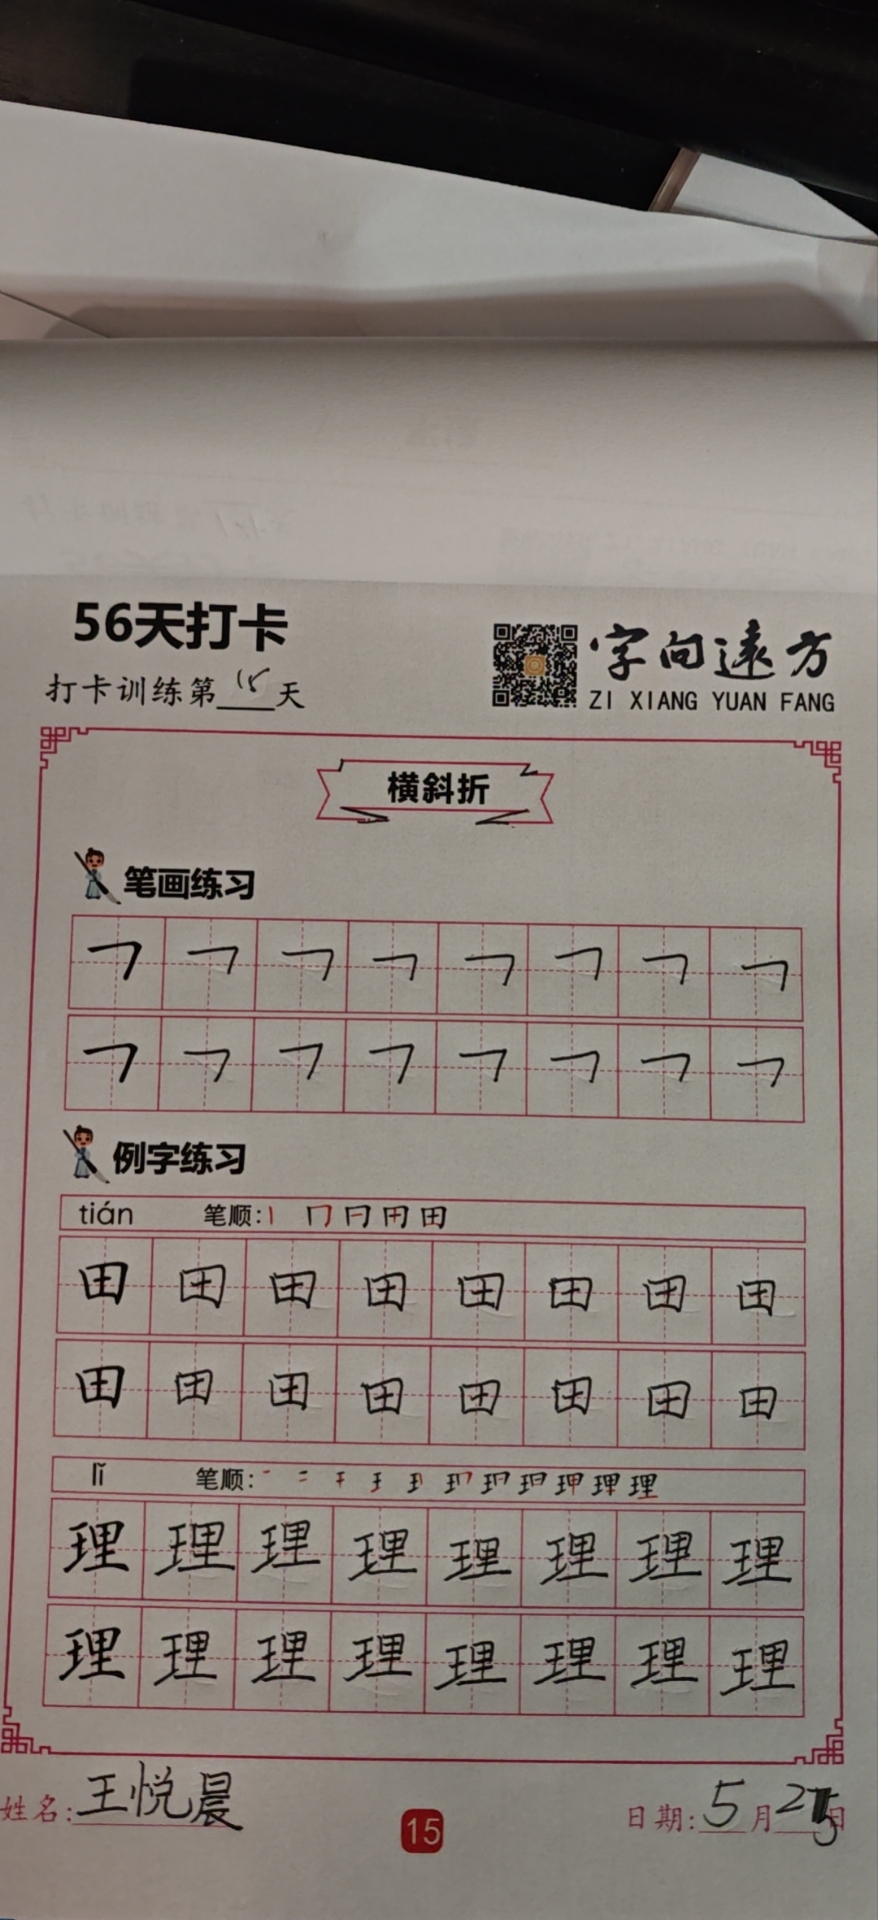 56天打卡
字向远方
打卡训练第15天
ZI XIANG YUAN FANG
横斜折
笔画练习
㇕ ㇕ ㇕ ㇕ ㇕ ㇕ ㇕ ㇕
㇕ ㇕ ㇕ ㇕ ㇕ ㇕ ㇕ ㇕
例字练习
tián 笔顺: 丨 冂 日 田 田
田 田 田 田 田 田 田 田
田 田 田 田 田 田 田 田
lǐ 笔顺:
理 理 理 理 理 理 理 理
理 理 理 理 理 理 理 理
姓名: 王悦晨
15
日期: 5月25日